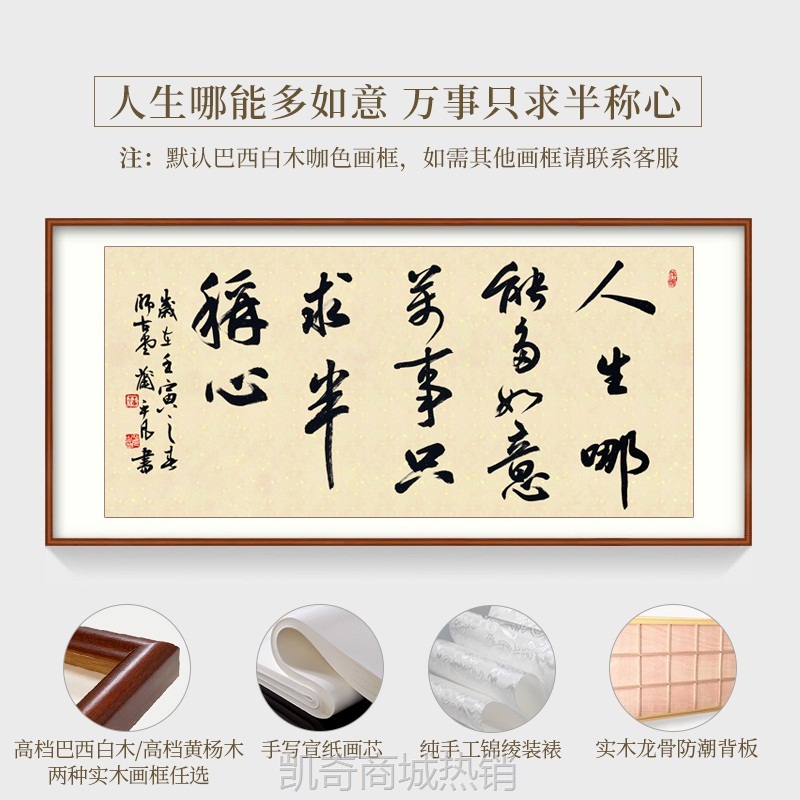 人生哪能多如意 万事只求半称心
注：默认巴西白木咖色画框，如需其他画框请联系客服
人生哪
能多如意
萬事只
求半
稱心
歲在壬寅之春
師古堂 蕭平凡 書
高档巴西白木/高档黄杨木
两种实木画框任选
手写宣纸画芯
纯手工锦绫装裱
实木龙骨防潮背板
凯奇商城热销